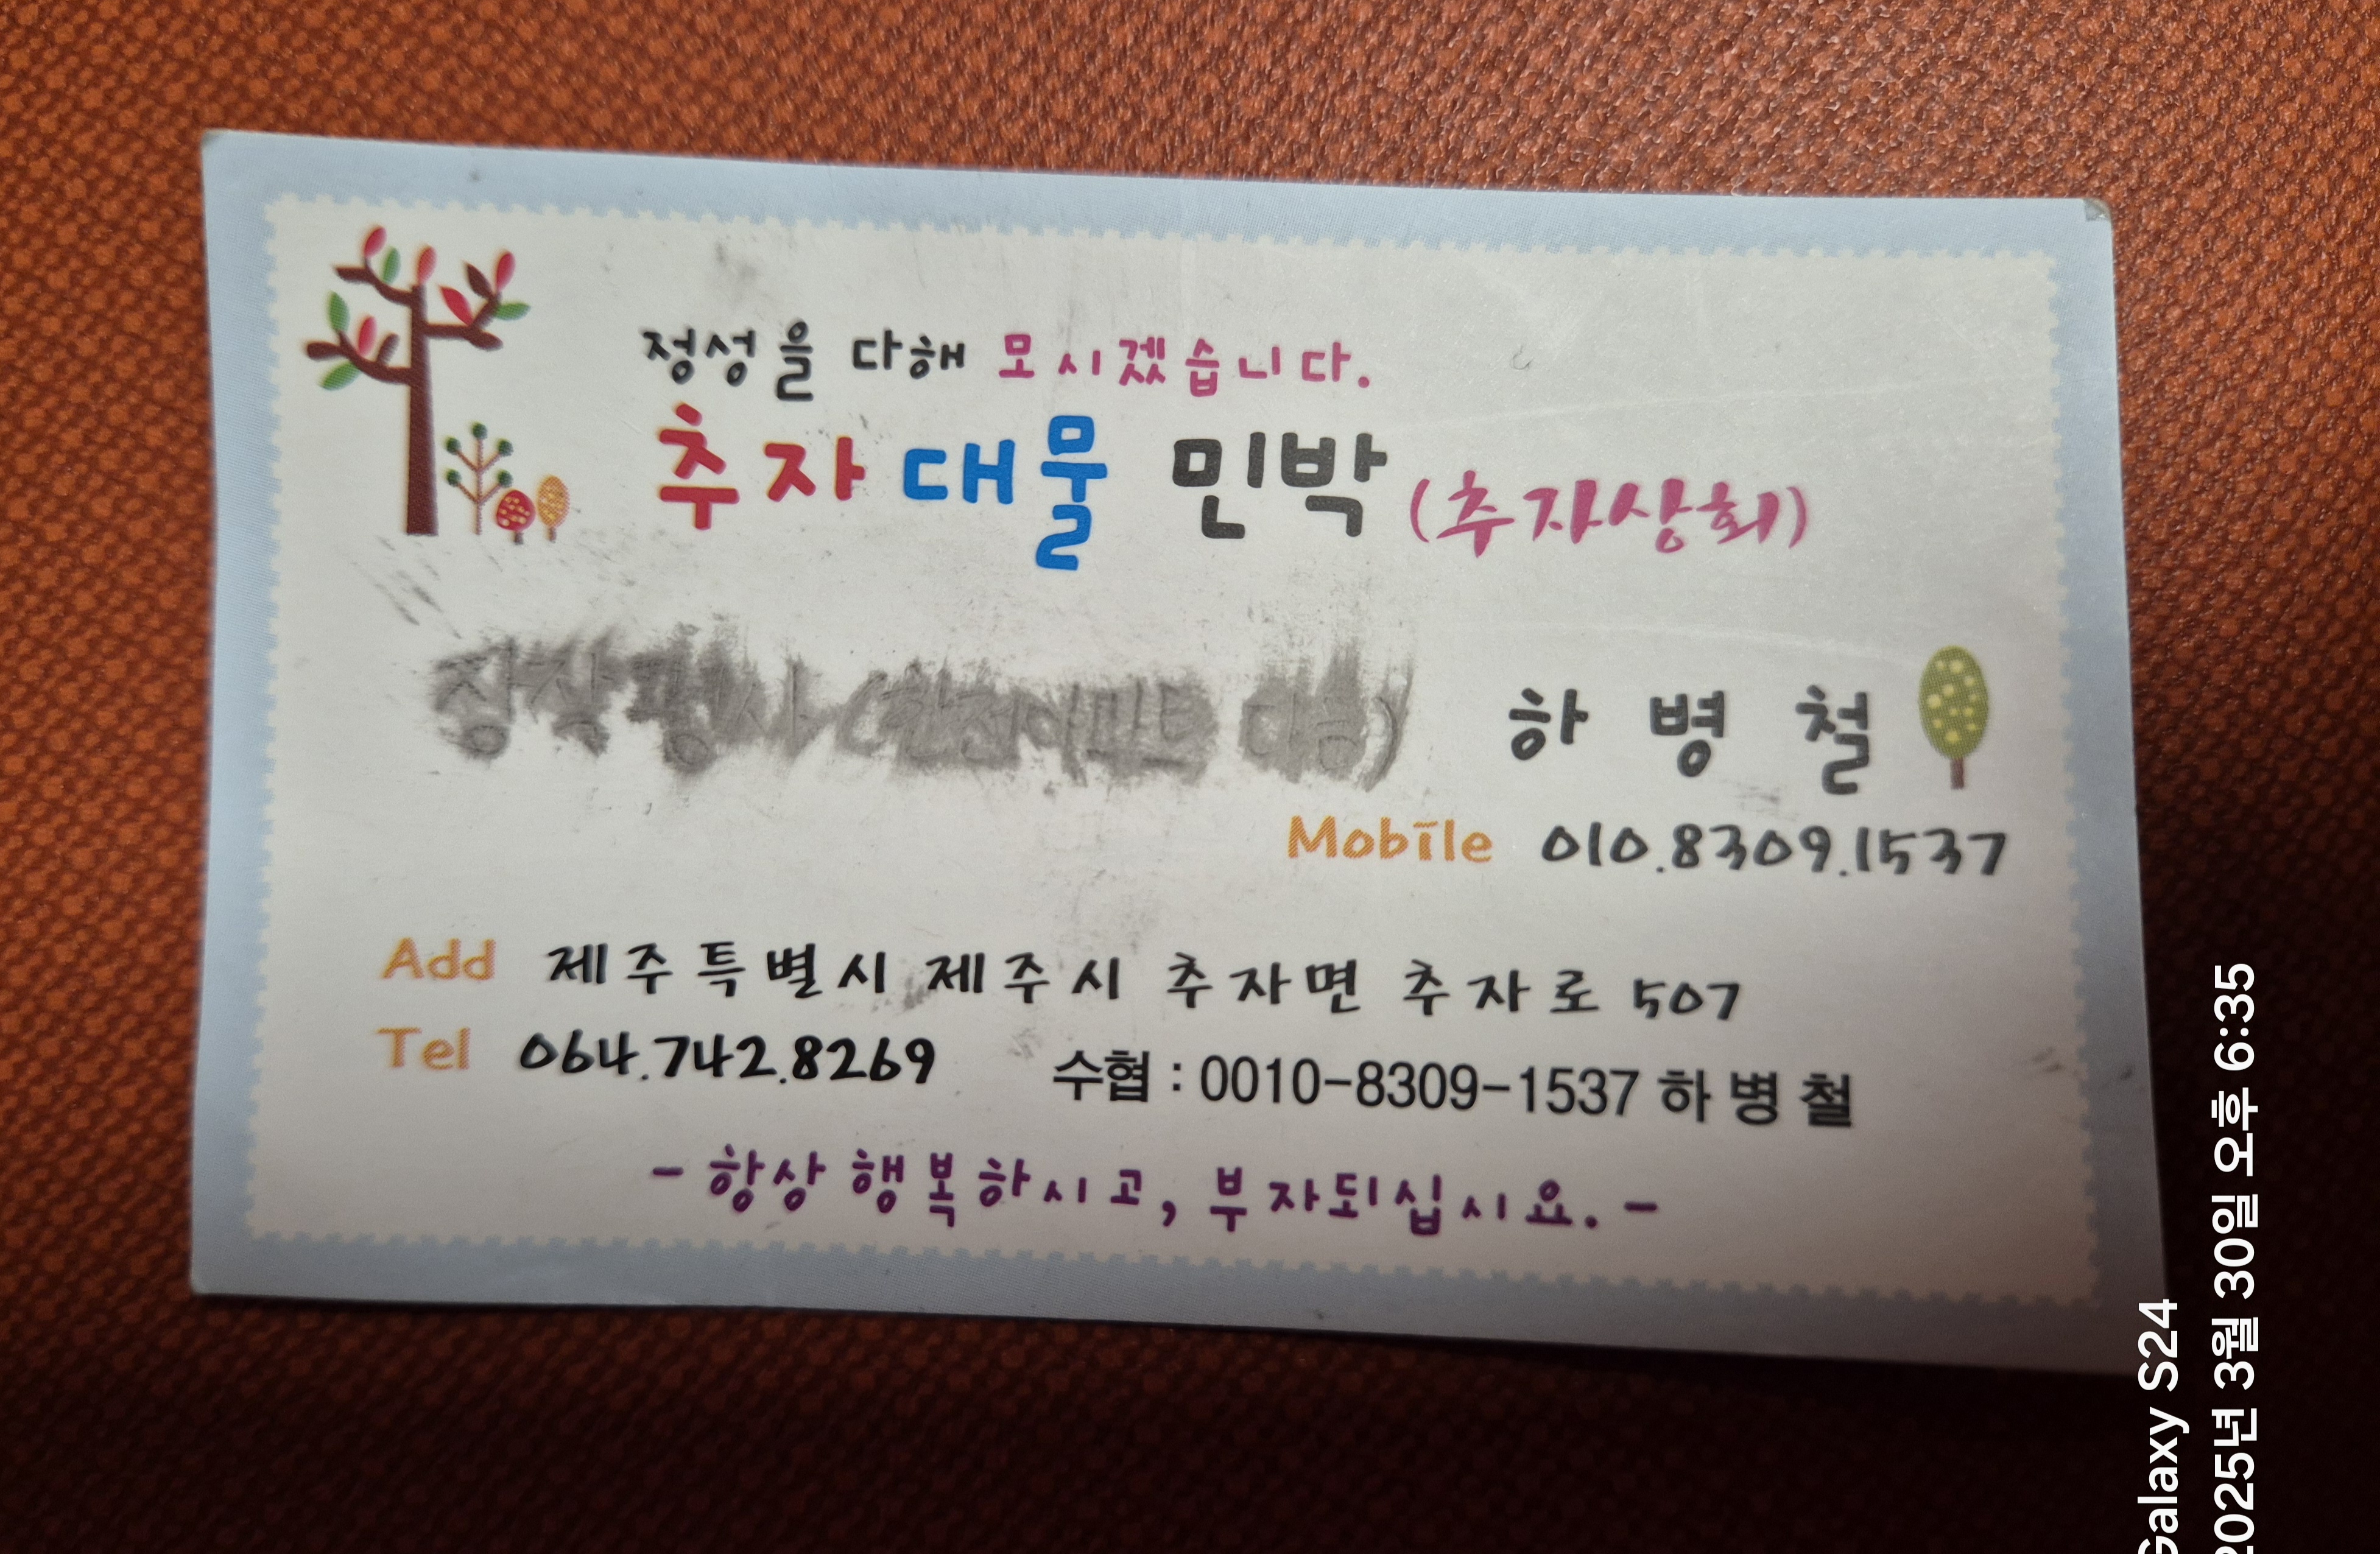 정성을 다해 모시겠습니다.
추자대물 민박 (추자상회)
하 병 철
Mobile 010.8309.1537
Add 제주특별시 제주시 추자면 추자로 507
Tel 064.742.8269 수협 : 0010-8309-1537 하 병 철
- 항상 행복하시고, 부자되십시요. -
Galaxy S24
2025년 3월 30일 오후 6:35